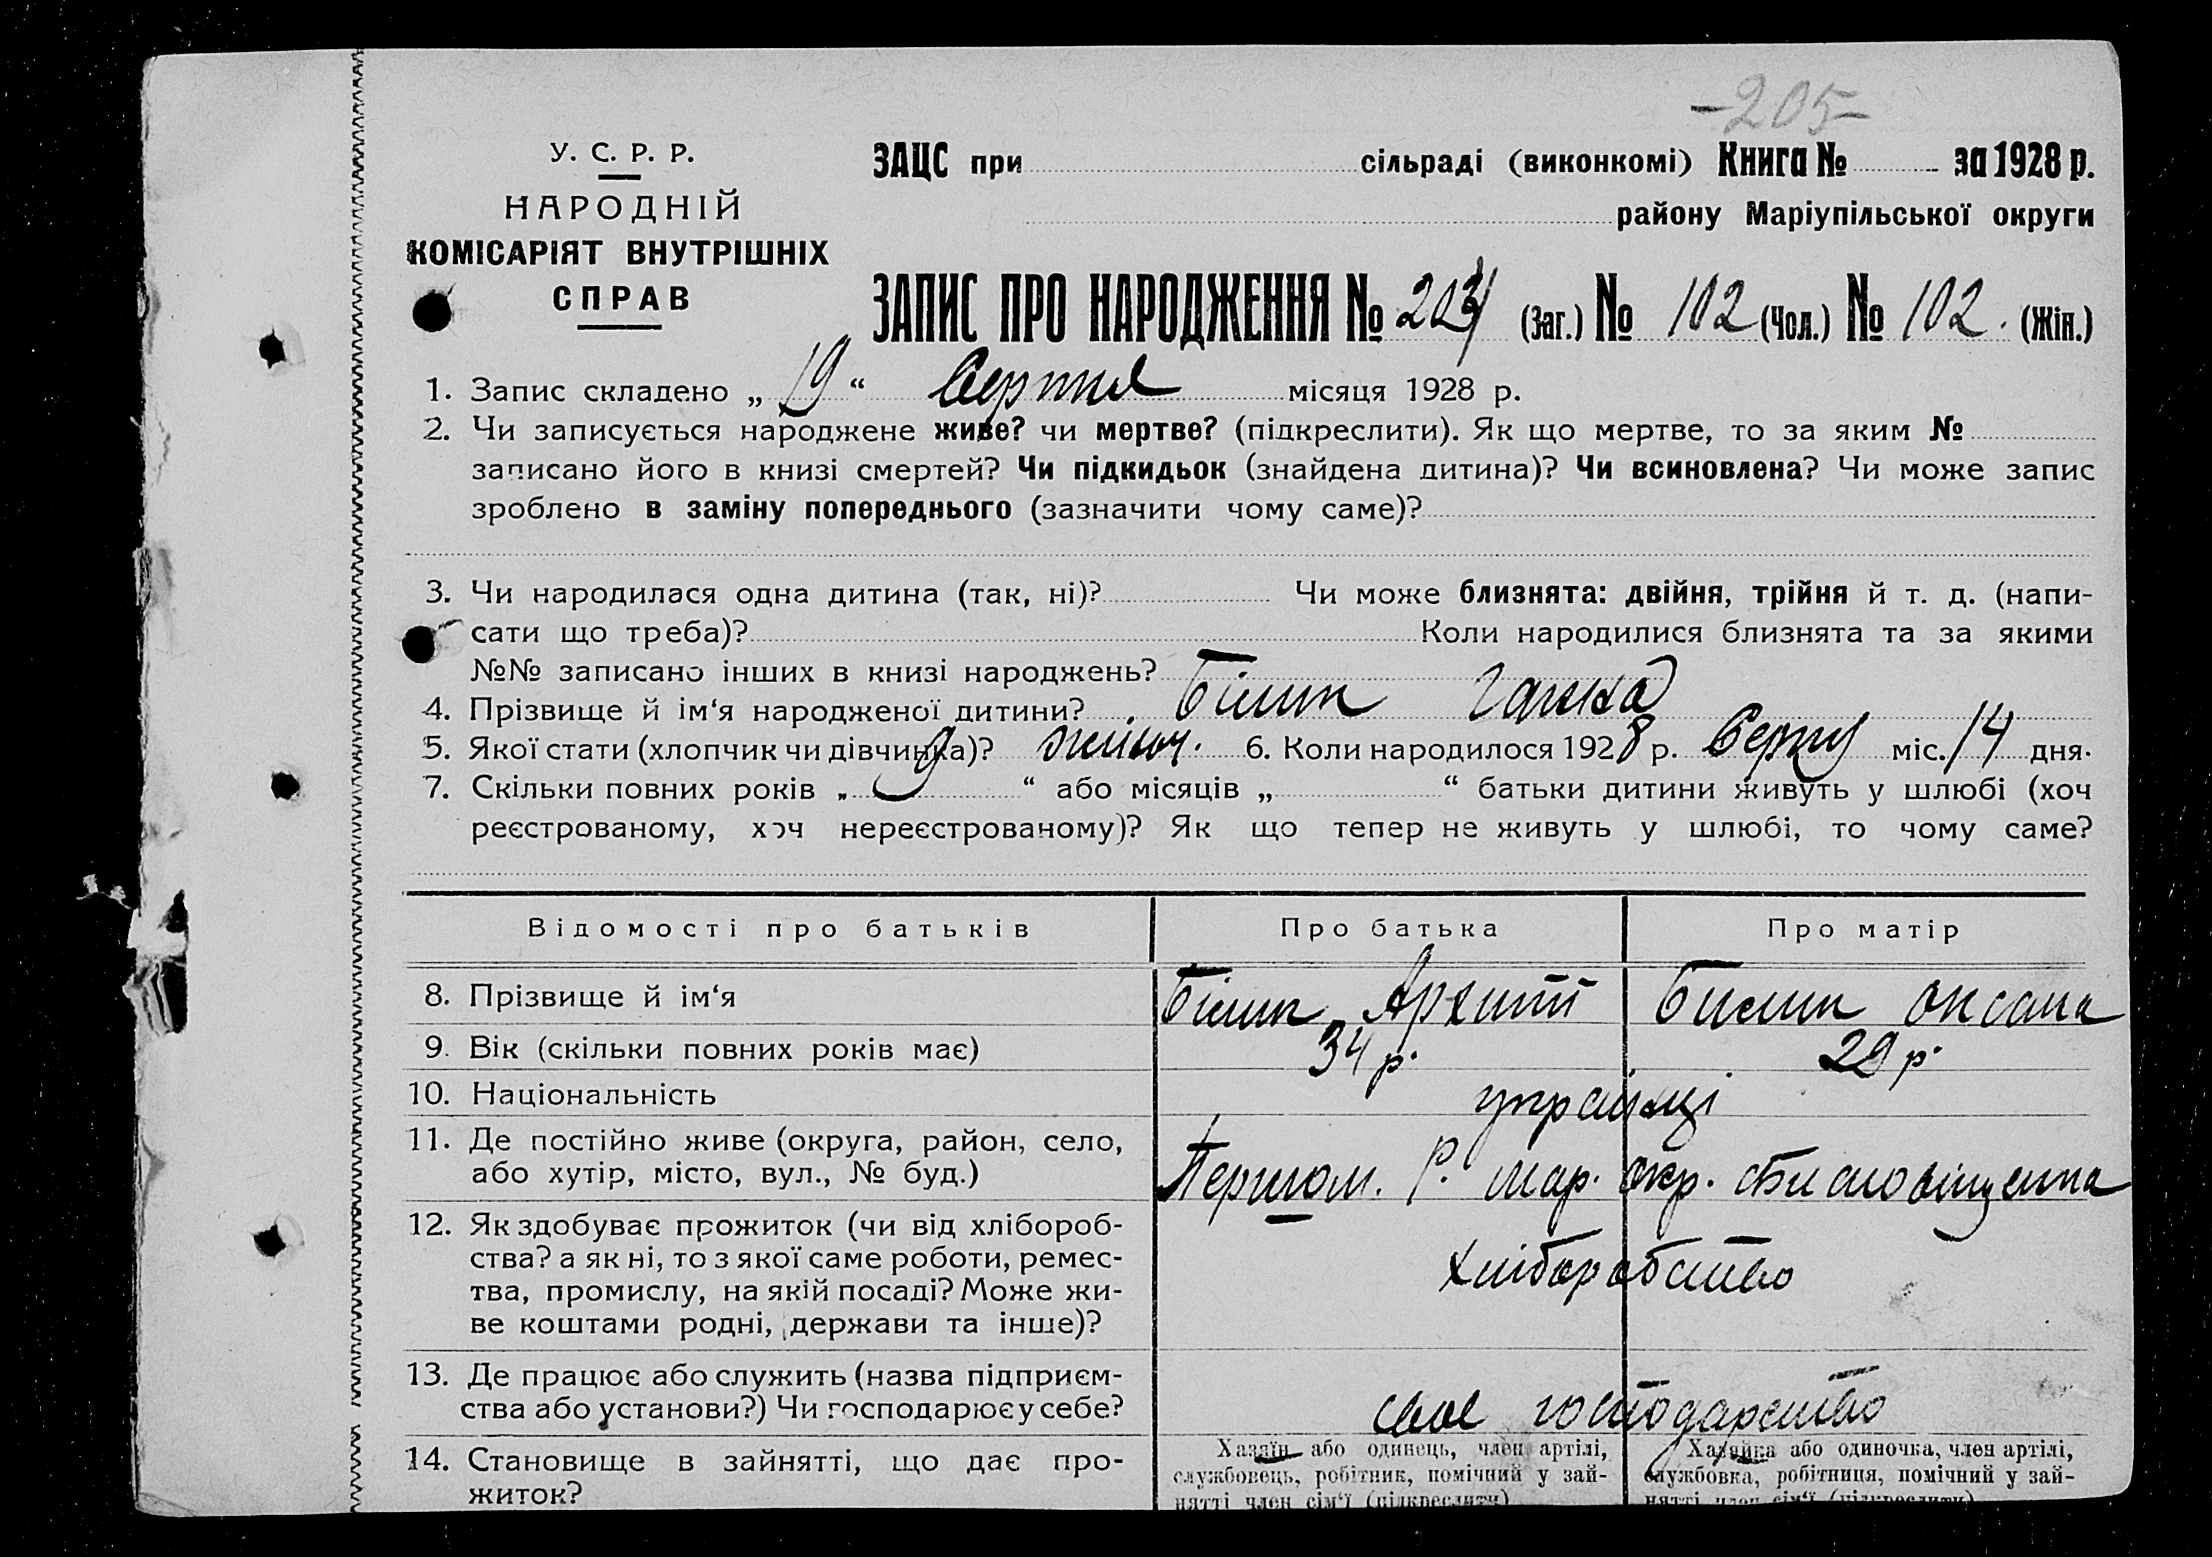 -205-
У. С. Р. Р.
НАРОДНІЙ
КОМІСАРІЯТ ВНУТРІШНІХ
СПРАВ
ЗАЦС при сільраді (виконкомі) Книга № за 1928 р.
району Маріупільської округи
ЗАПИС ПРО НАРОДЖЕННЯ № (Заг.) № 102 (Чол.) № 102. (Жін.)
1. Запис складено „ 19 “ Серпня місяця 1928 р.
2. Чи записується народжене живе? чи мертве? (підкреслити). Як що мертве, то за яким №
записано його в книзі смертей? Чи підкидьок (знайдена дитина)? Чи всиновлена? Чи може запис
зроблено в заміну попереднього (зазначити чому саме)?
3. Чи народилася одна дитина (так, ні)? Чи може близнята: двійня, трійня й т. д. (напи-
сати що треба)? Коли народилися близнята та за якими
№№ записано інших в книзі народжень?
4. Прізвище й ім‘я народженої дитини? Білик Ганна
5. Якої стати (хлопчик чи дівчинка)? 6. Коли народилося 1928 р. Серпн міс. 14 дня.
7. Скільки повних років „ 9 “ або місяців „ “ батьки дитини живуть у шлюбі (хоч
реєстрованому, хоч нереєстрованому)? Як що тепер не живуть у шлюбі, то чому саме?
Відомості про батьків Про батька Про матір
8. Прізвище й ім‘я Білик Архип Билик Оксана
9. Вік (скільки повних років має) 34 р. 29 р.
10. Національність українці
11. Де постійно живе (округа, район, село,
або хутір, місто, вул., № буд.) Першом. Р. Мар. Окр.
12. Як здобуває прожиток (чи від хлібороб-
ства? а як ні, то з якої саме роботи, ремес-
тва, промислу, на якій посаді? Може жи-
ве коштами родні, держави та інше)? Хліборобство
13. Де працює або служить (назва підприєм-
ства або установи?) Чи господарює у себе? своє господарство
14. Становище в зайнятті, що дає про-
житок?
Хазяїн або одинець, член артілі,
службовець, робітник, помічний у зай-
нятті член сім‘ї (підкреслити)
Хазяйка або одиночка, член артілі,
службовка, робітниця, помічний у зай-
нятті член сім‘ї (підкреслити)